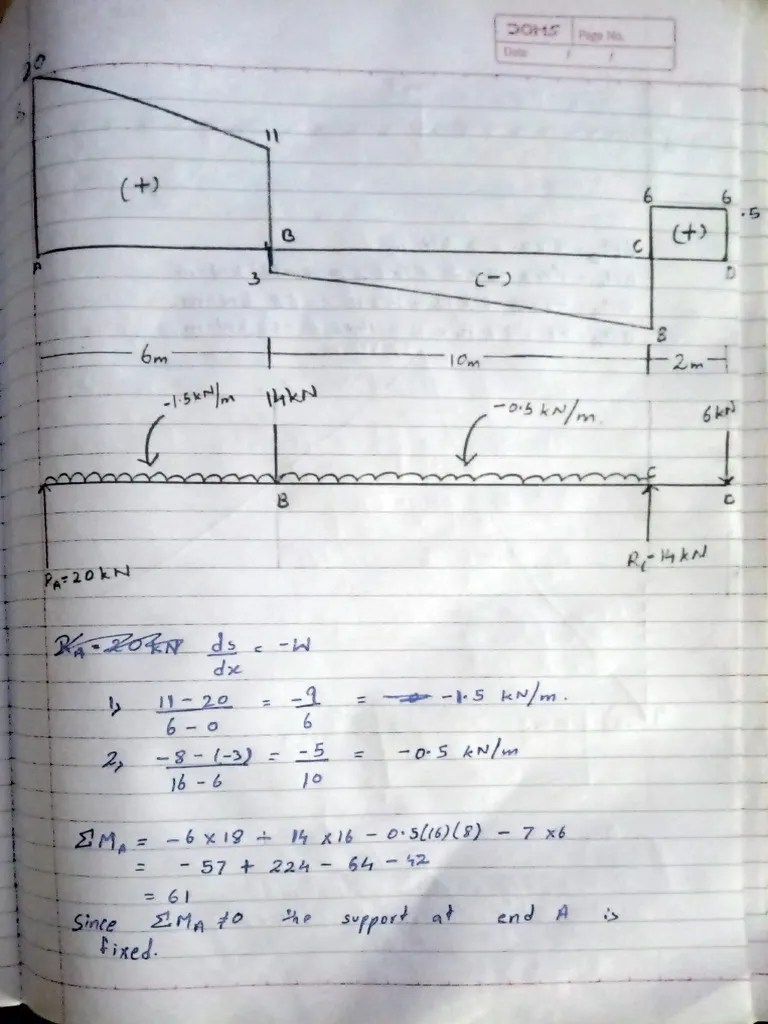 DOMS Page No.
Date / /
20
11
(+)
6 6
.5
B
C (+)
A
3
(-)
D
8
6m 10m 2m
-1.5kN/m 14kN -0.5 kN/m. 6kN
B
C
RA=20kN
Rc=14kN
RA=20kN ds/dx = -W
1, 11-20/6-0 = -9/6 = -1.5 kN/m.
2, -8-(-3)/16-6 = -5/10 = -0.5 kN/m
ΣMA = -6×18 + 14×16 - 0.5(16)(8) - 7×6
= -57 + 224 - 64 - 42
= 61
Since ΣMA≠0 the support at end A is
fixed.